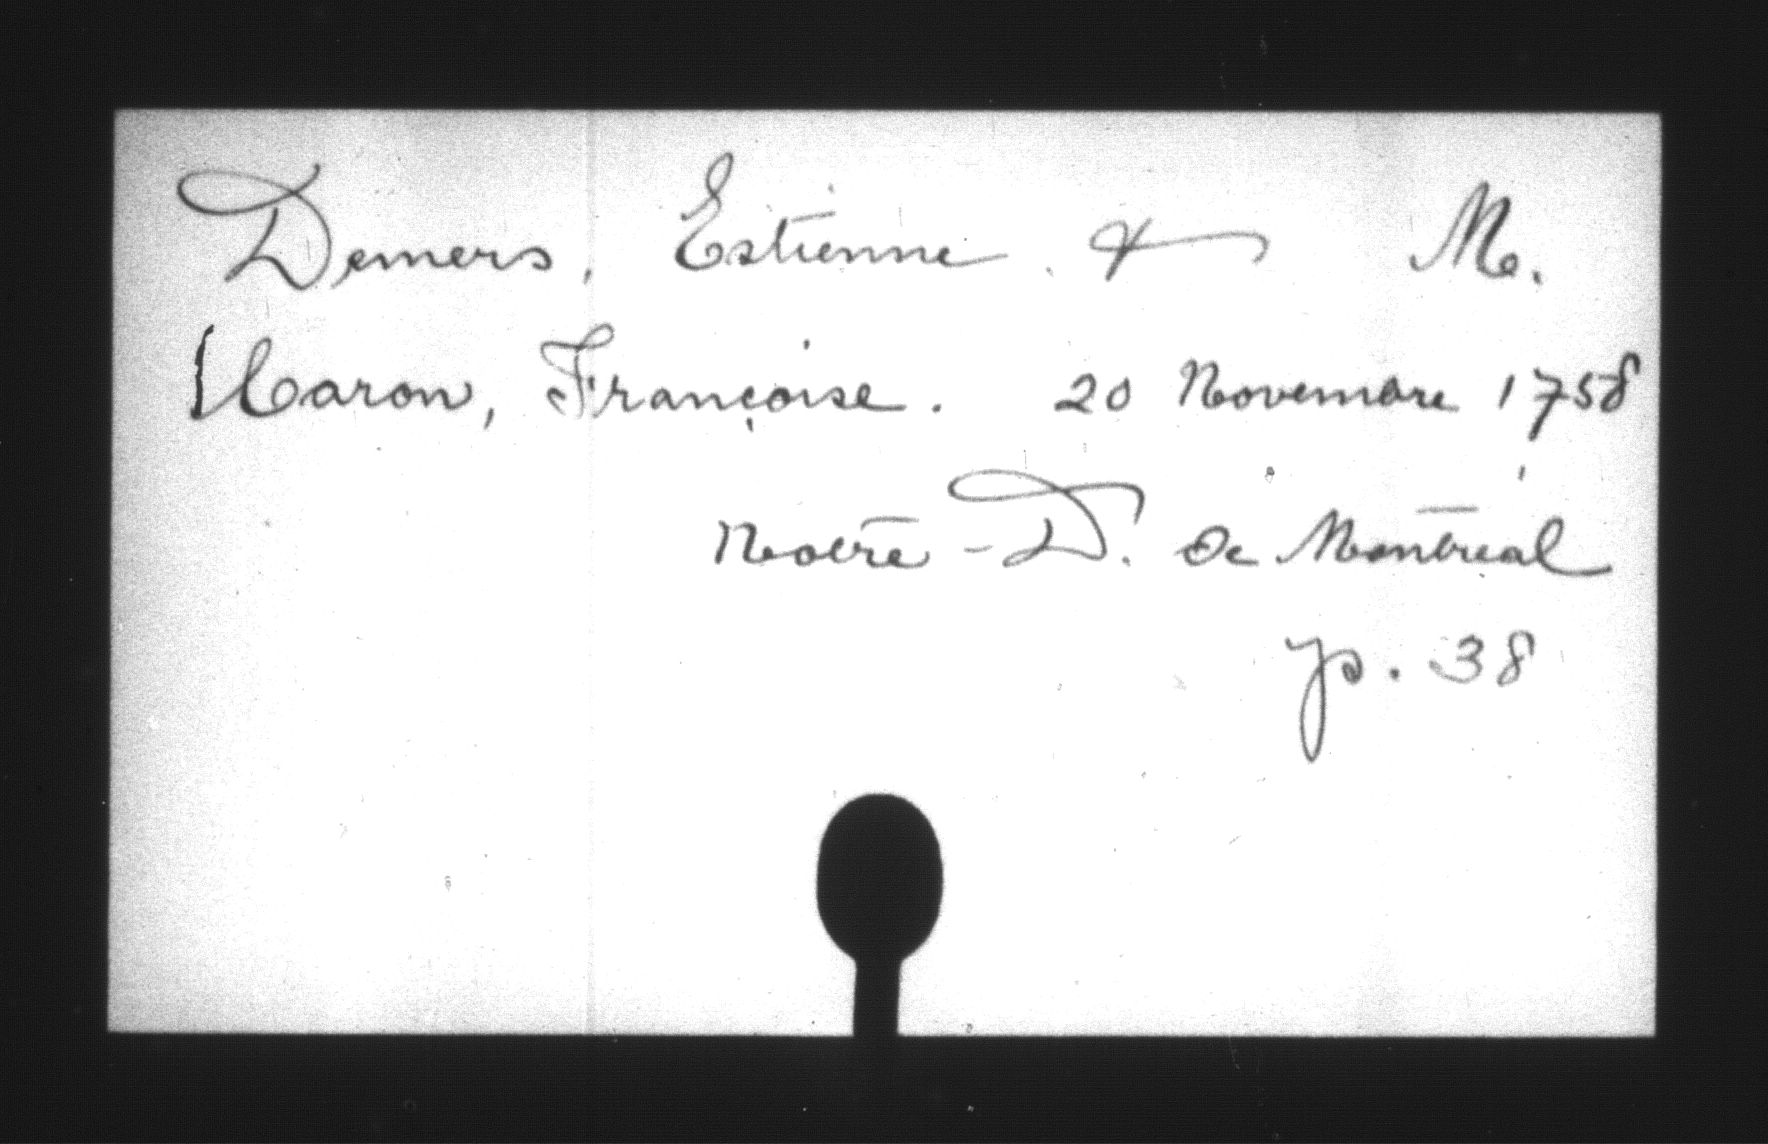 Demers, Estienne. & M.
Caron, Françoise. 20 Novembre 1758
Notre-D. de Montréal
p. 38